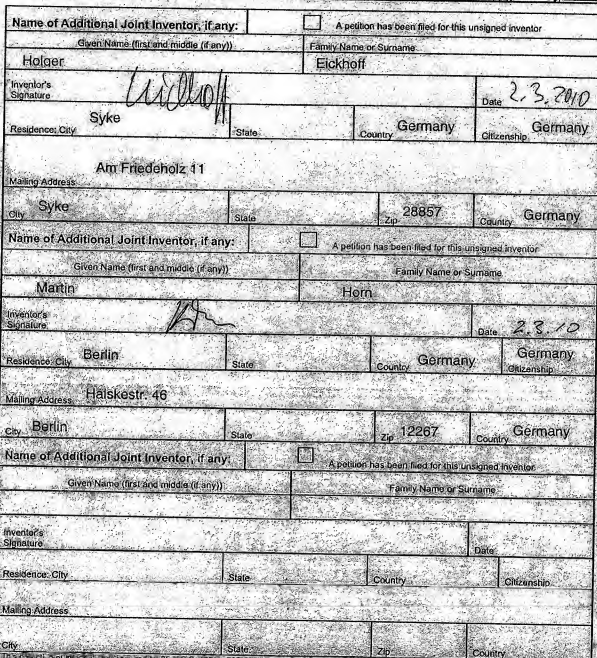 Name of Additional Joint Inventor, if any: A petition has been filed for this unsigned inventor
Given Name (first and middle (if any)) Family Name or Surname
Holger Eickhoff
Inventor's Signature Date 2.3.2010
Residence: City Syke State Country Germany Citizenship Germany
Am Friedeholz 11
Mailing Address
City Syke State Zip 28857 Country Germany
Name of Additional Joint Inventor, if any: A petition has been filed for this unsigned inventor
Given Name (first and middle (if any)) Family Name or Surname
Martin Horn
Inventor's Signature Date 2.3.10
Residence: City Berlin State Country Germany Germany Citizenship
Mailing Address Halskestr. 46
City Berlin State Zip 12267 Country Germany
Name of Additional Joint Inventor, if any: A petition has been filed for this unsigned inventor
Given Name (first and middle (if any)) Family Name or Surname
Inventor's Signature Date
Residence: City State Country Citizenship
Mailing Address
City State Zip Country